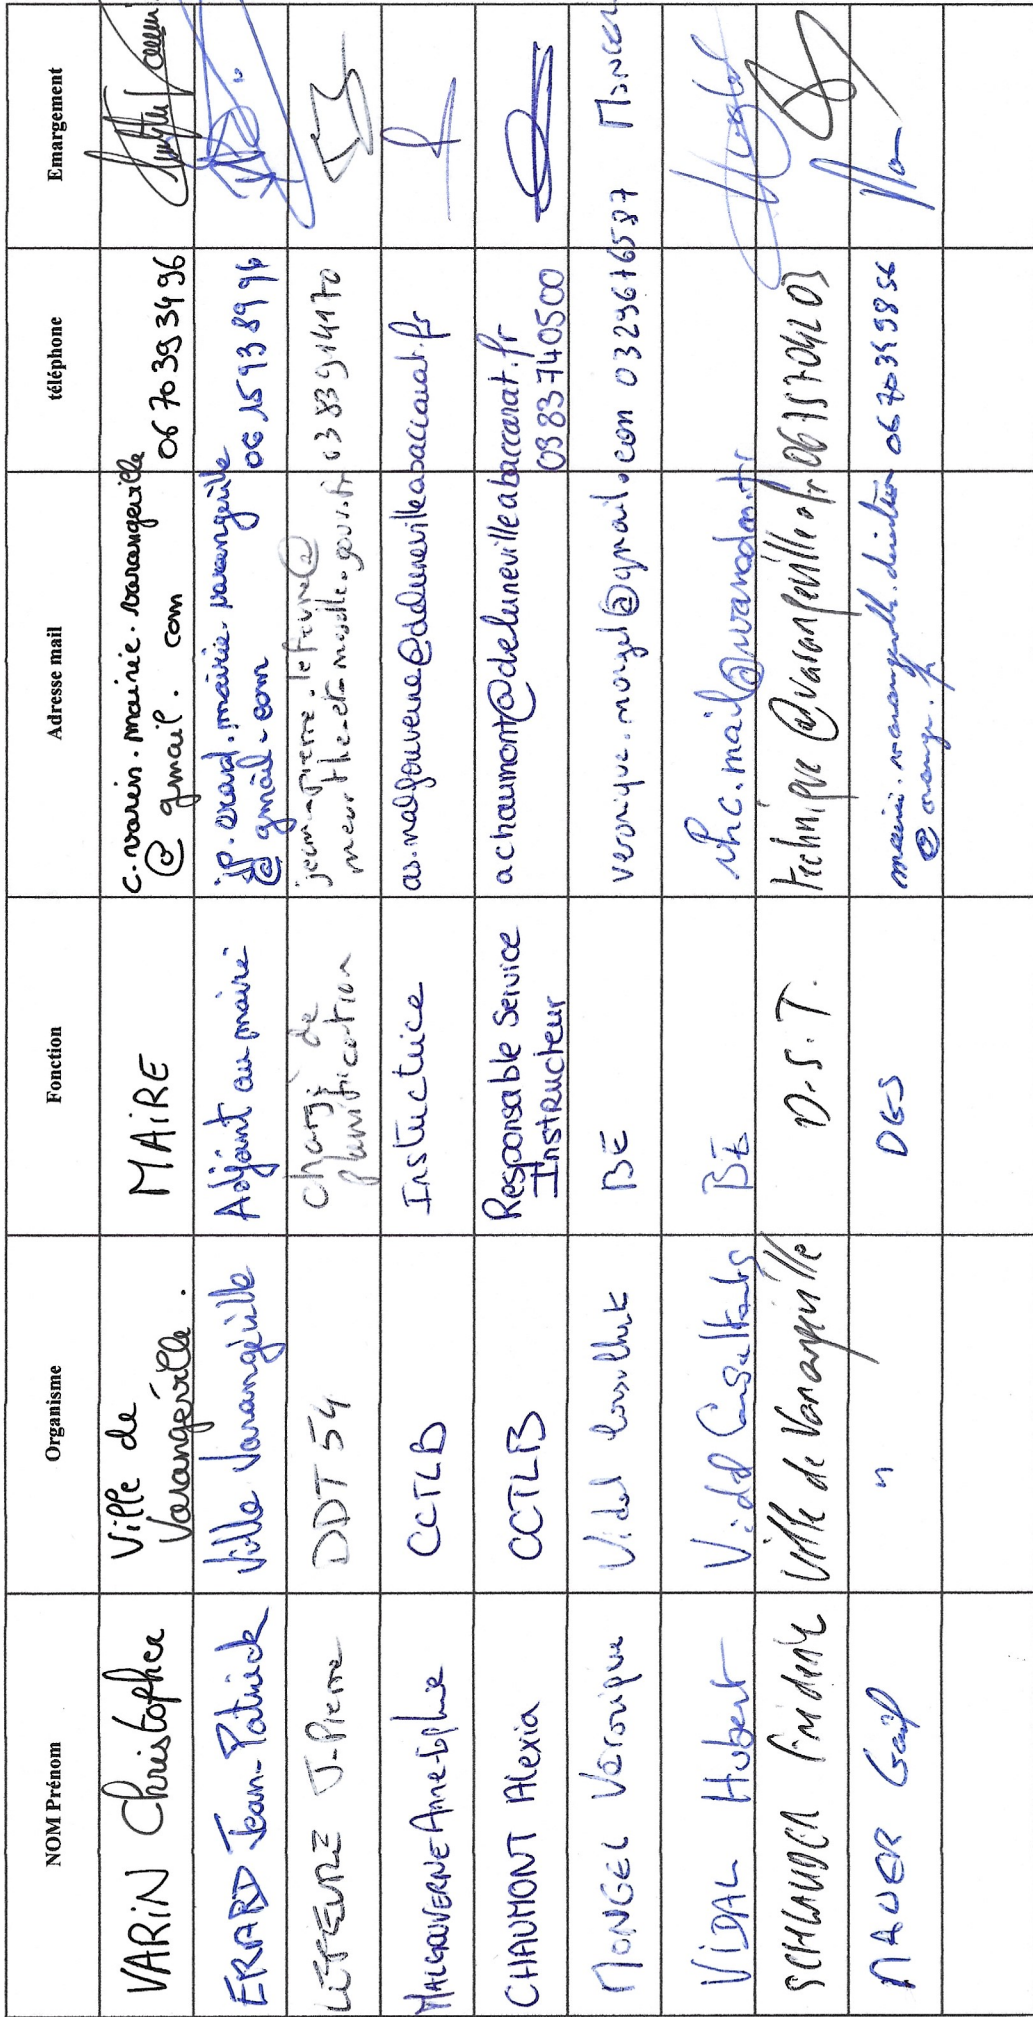 NOM Prénom Organisme Fonction Adresse mail téléphone Emargement
VARIN Christopher Ville de Varangéville. MAIRE c.varin.mairie.varangeville @ gmail.com 06 70 39 34 96
ERARD Jean-Patrick Ville Varangéville Adjoint au maire jp.erard.mairie.varangeville @ gmail.com 06 15 93 89 96
LEFEVRE J-Pierre DDT 54 Chargé de planification 03 83 91 41 70
MALGOUVERNE Anne-Sophie CCTLB Instuctrice as.malgouverne@
CHAUMONT Alexia CCTLB Responsable Service Instructeur achaumont@delunevilleabaccarat.fr 03 83 74 05 00
MONGEL Véronique Vidal Consultant BE veronique.mongel@gmail.com 03 29 67 65 87
VIDAL Hubert Vidal Consultants BE vhc.mail@wanadoo.fr
SCHLAUDER Frédéric Ville de Varangéville D.S.T. technique@varangeville.fr
MAUER " DGS mairie.varangeville.direction @ orange.fr